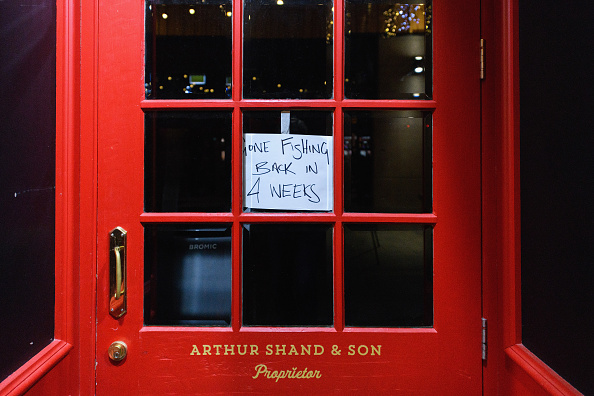 GONE FISHING
BACK IN
4 WEEKS
BROMIC
ARTHUR SHAND & SON
Proprietor